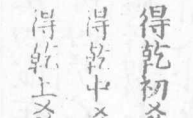 得乾初爻
得乾中爻
得乾上爻